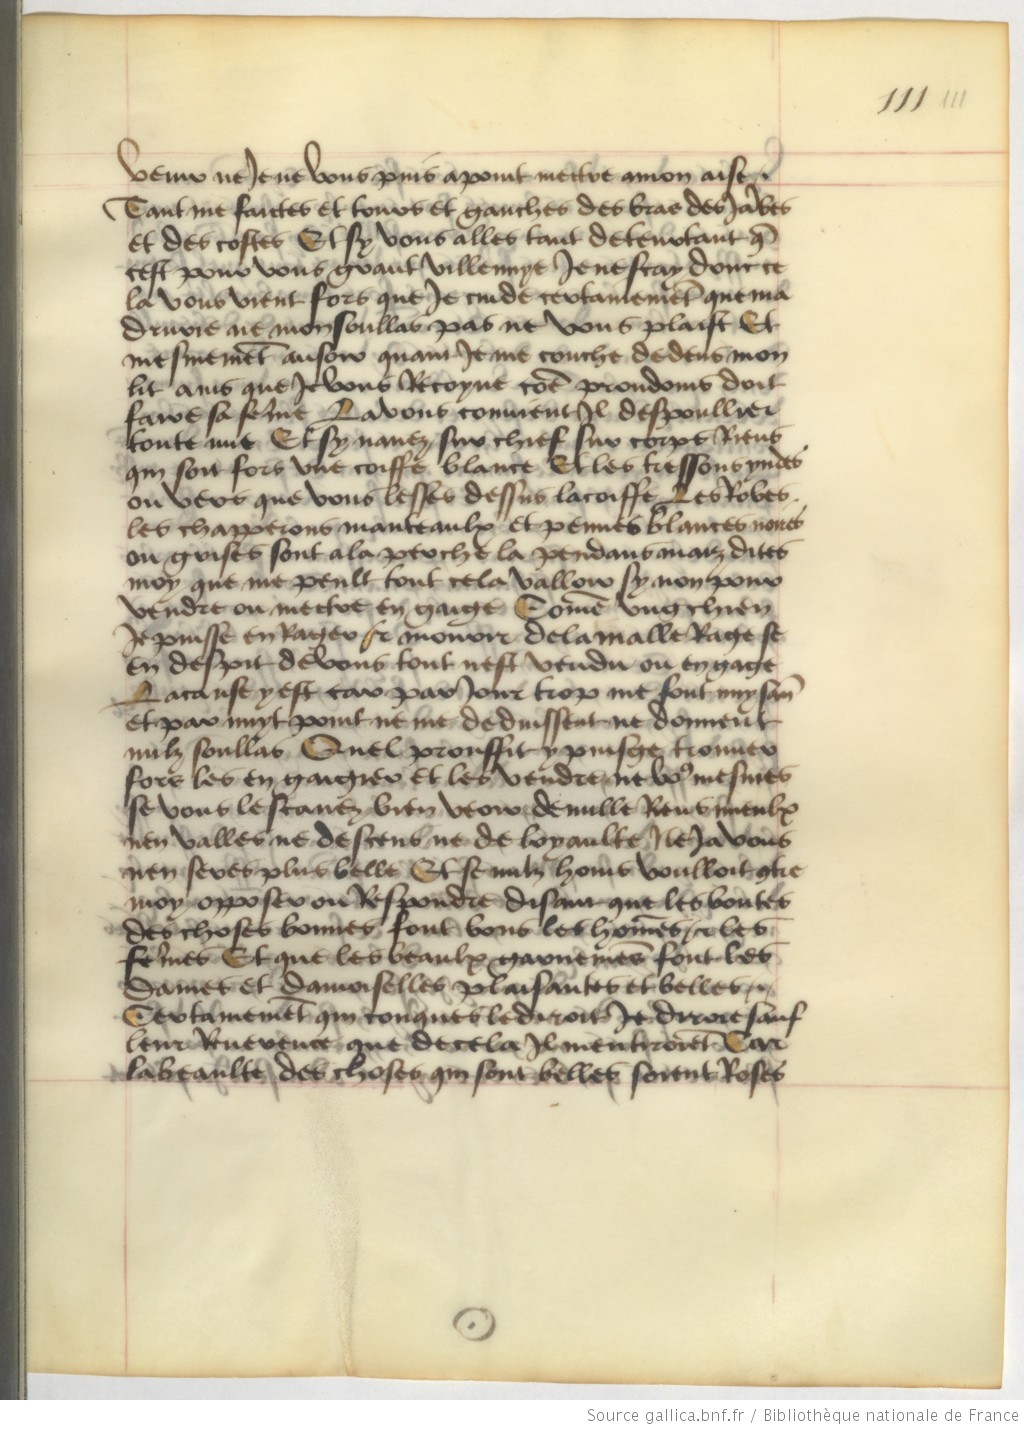 111 111
venir ne Je ne vous puis apoint mectre amon aise
Tant me faictes et tours et ganches des bras des Jambes
et des costes Et sy vous alles tant deteurtant q̃
cest pour vous grant villennye Je ne scay dont ce
la vous vient fors que Je cuide certainemẽt que ma
druerie ne mon soullas pas ne vous plaist Et
mesmemẽt ausoir quant Je me couche dedens mon
lit ains que Je vous Recoyue cõe preudoms doit
faire sa fẽme La vous conuient Il despoullier
toute nue Et sy nauez sur chief sur corps Riens
qui soit fors vne coiffe blance Et les tressons yndes
ou vers que vous lesses dessus lacoiffe Les Robes
les chapperons manteaulx et pennes blances noires
ou grises sont ala perche la pendans maiz dites
moy que me peult tout cela valloir sy non pour
vendre ou mectre en gaige Cõme vng chien
Je puisse enRager & mourir delamalle Rage se
en despit de vous tout nest vendu ou en gage
La cause y est car par Jour trop me font nuysãn
et par nuyt point ne me deduissent ne donnent
nulz soullas Quel prouffit y puisge trouuer
fors les en gaigier et les vendre ne vo9 mesmes
se vous le scauez bien veoir de nulle Riens mieulx
nen valles ne de scens ne de loyaulte Ne Ja vous
nen seres plus belle Et se nulz homs voulloit cõtre
moy opposer ou Respondre disant que les bontes
des choses bonnes font bons les hõmes & les
fẽmes Et que les beaulx garnemẽs font les
dames et damoiselles plaisantes et belles
Certainemẽt qui conques le diroit Je diroie sauf
leur Reuerence que de cela Il mentiroiẽt Car
la beaulte des choses qui sont belles soient Roses
Source gallica.bnf.fr / Bibliothèque nationale de France